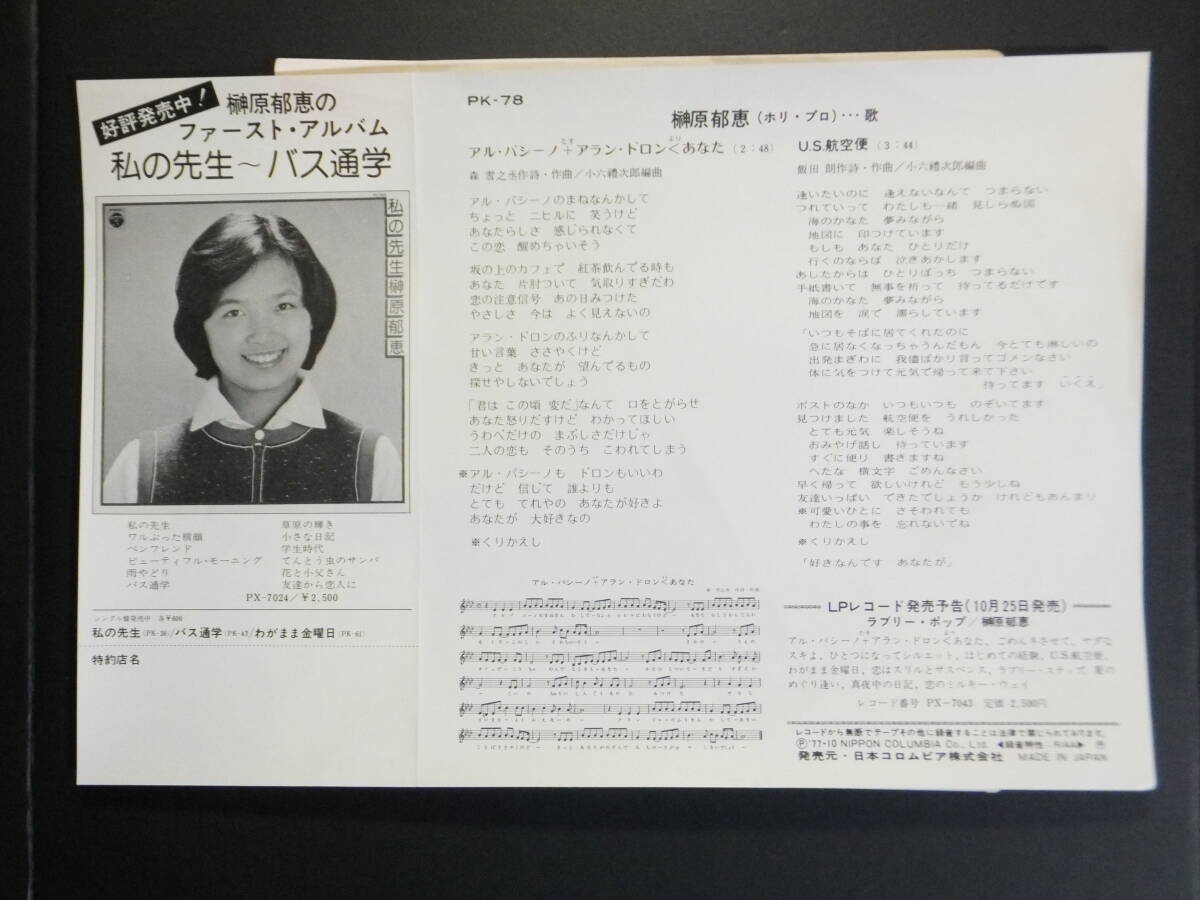 好評発売中!
榊原郁恵の
ファースト・アルバム
私の先生〜バス通学
私の先生 榊原郁恵
私の先生
ワルぶった横顔
ペンフレンド
ビューティフル・モーニング
雨やどり
バス通学
草原の輝き
小さな日記
学生時代
てんとう虫のサンバ
花と小父さん
友達から恋人に
PX-7024/¥2,500
シングル盤発売中 各¥600
私の先生(PK-36)/バス通学(PK-47)/わがまま金曜日(PK-61)
特約店名
PK-78
榊原郁恵(ホリ・プロ)…歌
アル・パシーノ+たすアラン・ドロン<よりあなた (2:48)
森 雪之丞作詩・作曲/小六禮次郎編曲
アル・パシーノのまねなんかして
ちょっと ニヒルに 笑うけど
あなたらしさ 感じられなくて
この恋 醒めちゃいそう
坂の上のカフェで 紅茶飲んでる時も
あなた 片肘ついて 気取りすぎだわ
恋の注意信号 あの日みつけた
やさしさ 今は よく見えないの
アラン・ドロンのふりなんかして
甘い言葉 ささやくけど
きっと あなたが 望んでるもの
探せやしないでしょう
「君は この頃 変だ」なんて 口をとがらせ
あなた怒りだすけど わかってほしい
うわべだけの まぶしさだけじゃ
二人の恋も そのうち こわれてしまう
※アル・パシーノも ドロンもいいわ
だけど 信じて 誰よりも
とても てれやの あなたが好きよ
あなたが 大好きなの
※くりかえし
アル・パシーノ+アラン・ドロン<あなた
U.S.航空便 (3:44)
飯田 朗作詩・作曲/小六禮次郎編曲
逢いたいのに 逢えないなんて つまらない
つれていって わたしも一緒 見しらぬ国
海のかなた 夢みながら
地図に 印つけています
もしも あなた ひとりだけ
行くのならば 泣きあかします
あしたからは ひとりぼっち つまらない
手紙書いて 無事を祈って 待ってるだけです
海のかなた 夢みながら
地図を 涙で 濡らしています
「いつもそばに居てくれたのに
急に居なくなっちゃうんだもん 今とても淋しいの
出発まぎわに 我儘ばかり言ってゴメンなさい
体に気をつけて元気で帰って来て下さい
待ってます いくえ」
ポストのなか いつもいつも のぞいてます
見つけました 航空便を うれしかった
とても元気 楽しそうね
おみやげ話し 待っています
すぐに便り 書きますね
へたな 横文字 ごめんなさい
早く帰って 欲しいけれど もう少しね
友達いっぱい できたでしょうか けれどもあんまり
※可愛いひとに さそわれても
わたしの事を 忘れないでね
※くりかえし
「好きなんです あなたが」
LPレコード発売予告(10月25日発売)
ラブリー・ポップ/榊原郁恵
アル・パシーノ+たすアラン・ドロン<よりあなた、ごめんネさせて、ヤダな
スキよ、ひとつになってシルエット、はじめての経験、U.S.航空便、
わがまま金曜日、恋はスリルとサスペンス、ラブリー・ステップ、夏の
めぐり逢い、真夜中の日記、恋のミルキー・ウェイ
レコード番号 PX-7043 定価 2,500円
レコードから無断でテープその他に録音することは法律で禁じられております。
Ⓟ'77・10 NIPPON COLUMBIA Co., Ltd. ◀録音特性:RIAA▶
発売元・日本コロムビア株式会社 MADE IN JAPAN